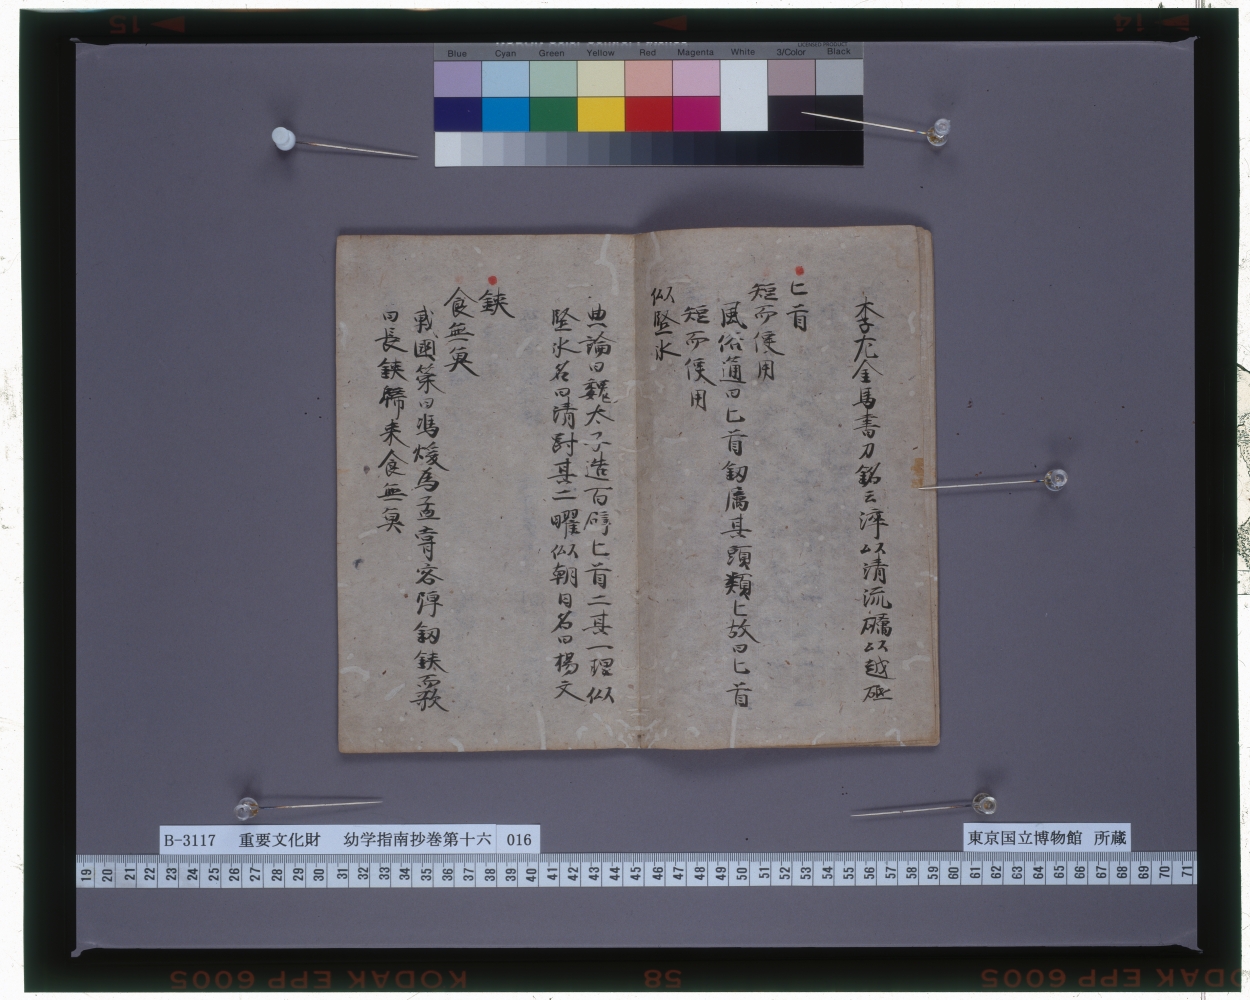 Blue Cyan Green Yellow Red Magenta White 3/Color Black
LICENSED PRODUCT
李尤金馬書刀銘云淬以清流礪以越砥
匕首
短而便用
風俗通曰匕首釼属其頭類匕故曰匕首
短而便用
似堅氷
典論曰魏太子造百辟匕首二其一理似
堅氷名曰清剛其二曜似朝日名曰楊文
鋏
食無魚
戰國策曰馮煖為孟甞客弾釼鋏歌
曰長鋏歸来食無魚
B-3117 重要文化財 幼学指南抄巻第十六 016
東京国立博物館 所蔵
19 20 21 22 23 24 25 26 27 28 29 30 31 32 33 34 35 36 37 38 39 40 41 42 43 44 45 46 47 48 49 50 51 52 53 54 55 56 57 58 59 60 61 62 63 64 65 66 67 68 69 70 71
KODAK EPP 6005
58
KODAK EPP 6005
15
14